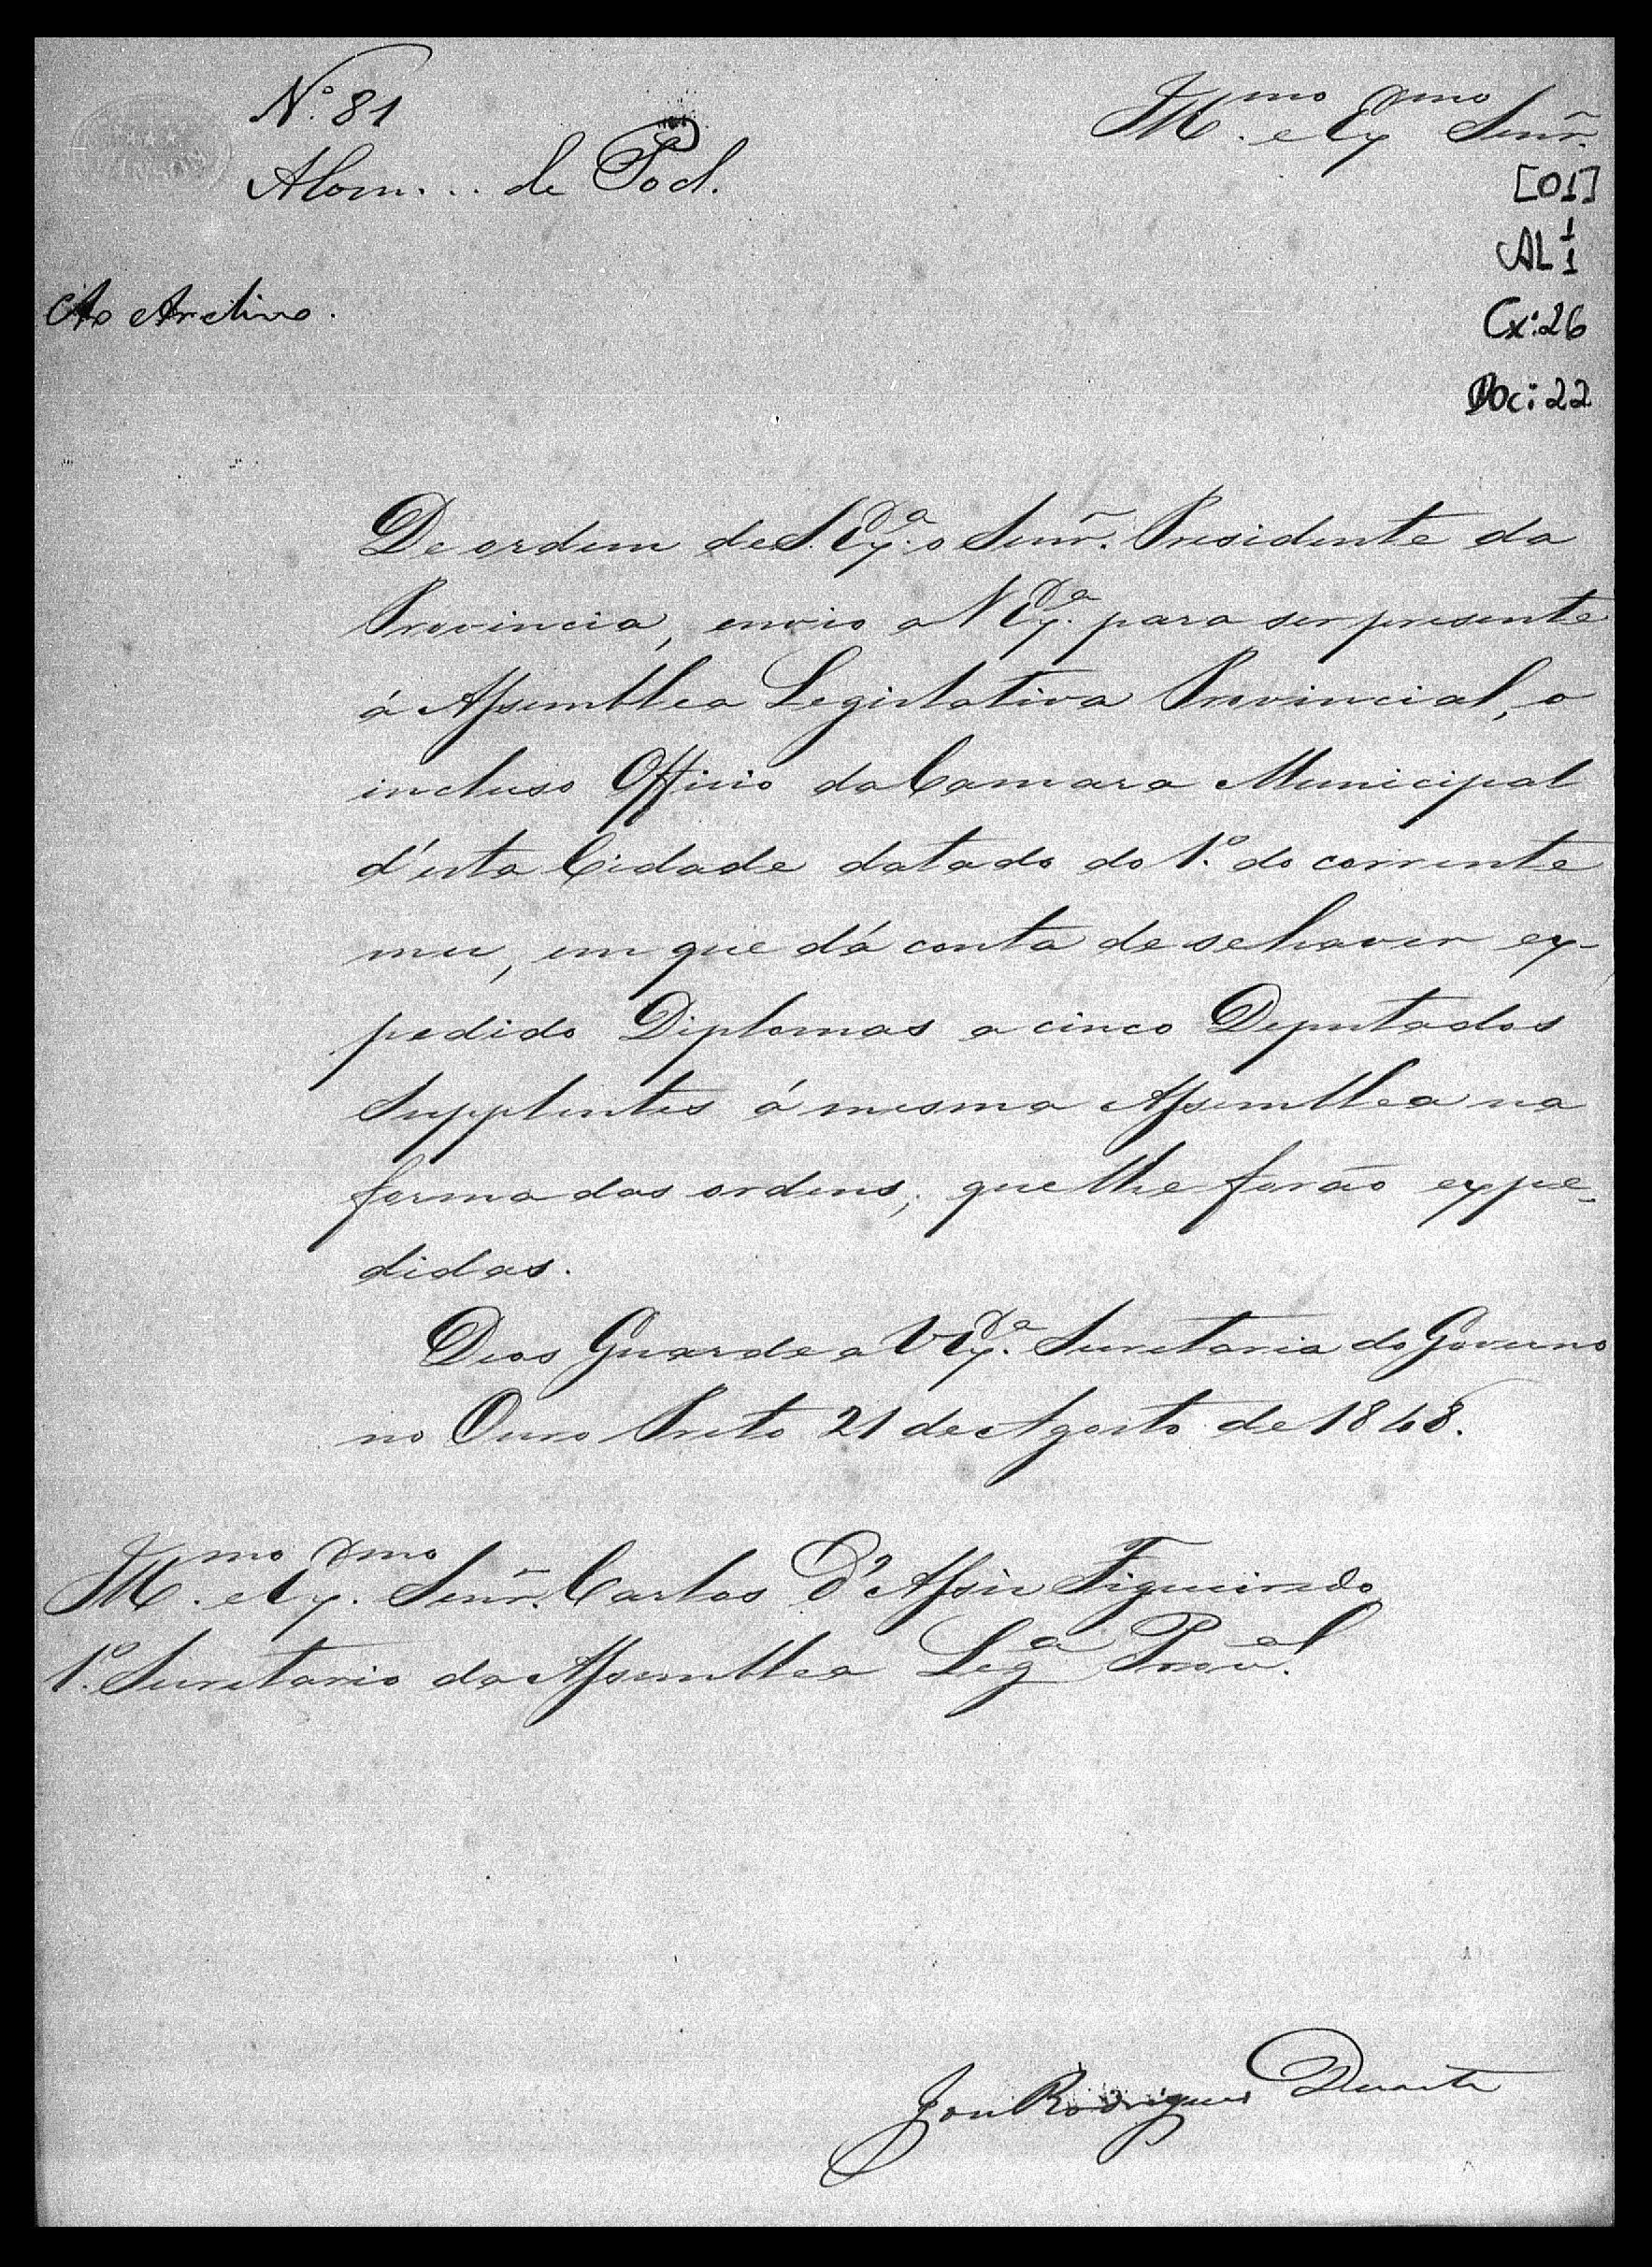 Nº. 81
Illmo. e Exmo. Senr.
de Pod.
[01]
AL 1/1
Ao Archivo.
Cx: 26
Doc: 22
De ordem de S. Exª. o Senr. Presidente da
Provincia, envio a V Exª. para ser presente
á Assemblea Legislativa Provincial, o
incluso Officio da Camara Municipal
d'esta Cidade datado do 1º. do corrente
mez, em que dá conta de se haver ex-
pedido Diplomas a cinco Deputados
Supplentes á mesma Assemblea na
forma das ordens, que lhe forão expe-
didas.
Deos Guarde a V Exª. Secretaria do Governo
no Ouro Preto 21 de Agosto de 1848.
Illmo. e Exmo. Senr. Carlos d'Assis Figueiredo
1º. Secretario da Assemblea Legª Proval.
José Rodrigues Duarte